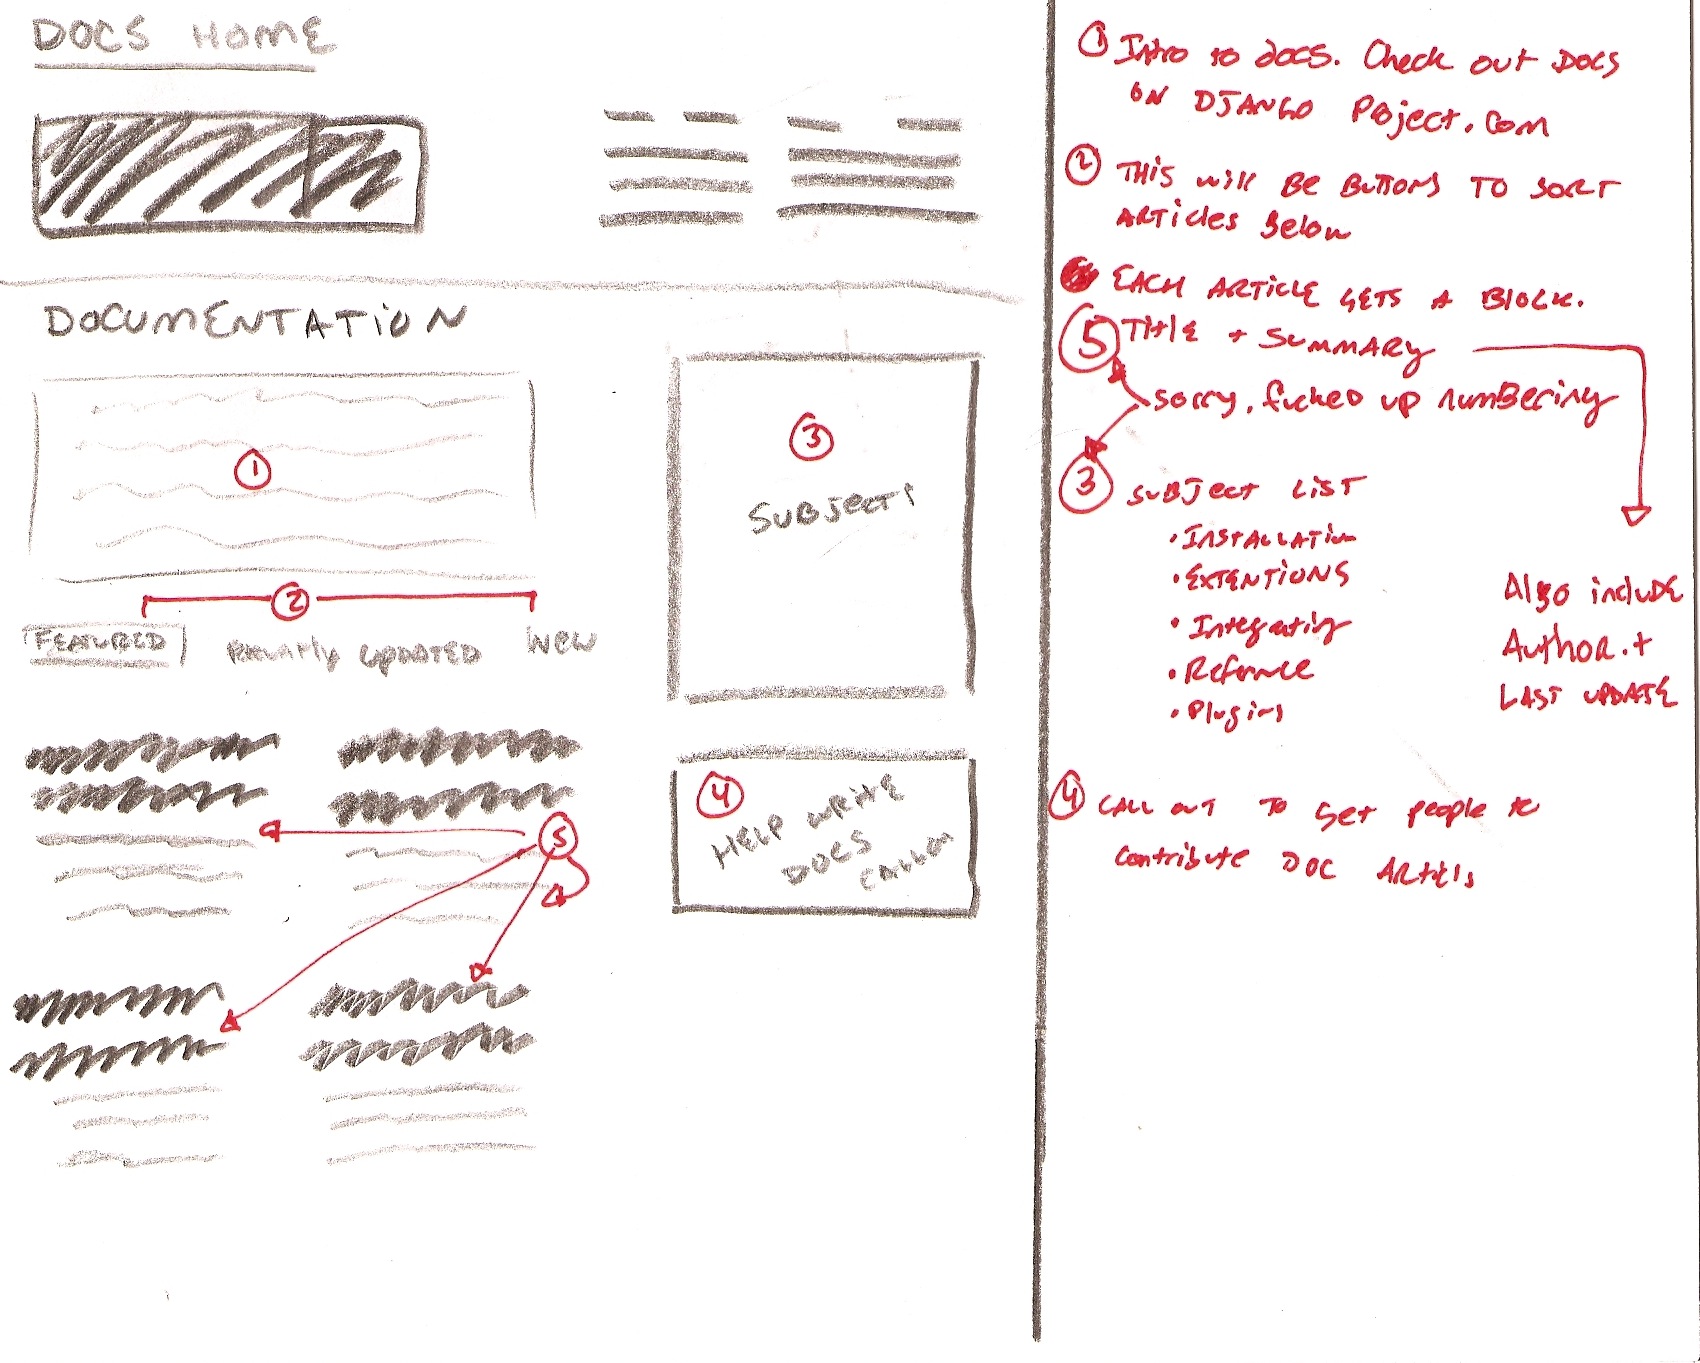 DOCS HOME
DOCUMENTATION
1
2
FEATURED
UPDATED
NEW
3
SUBJECT
4
HELP WRITE
DOCS
5
1 Intro to docs. Check out Docs
on DJANGO Project.com
2 THis will BE BUTTONS TO SORT
ARTicles Below
EACH ARTICLE GETS A BLOCK.
5 TitlE + SUMMARY
sorry, fucked up numBering
3 SUBJect LIST
• INSTALLATION
• EXTENTIONS
• Integrating
• Refernce
• Plugins
Also include
Author +
LAST UPDATE
4 CALL OUT To Get people to
Contribute DOC